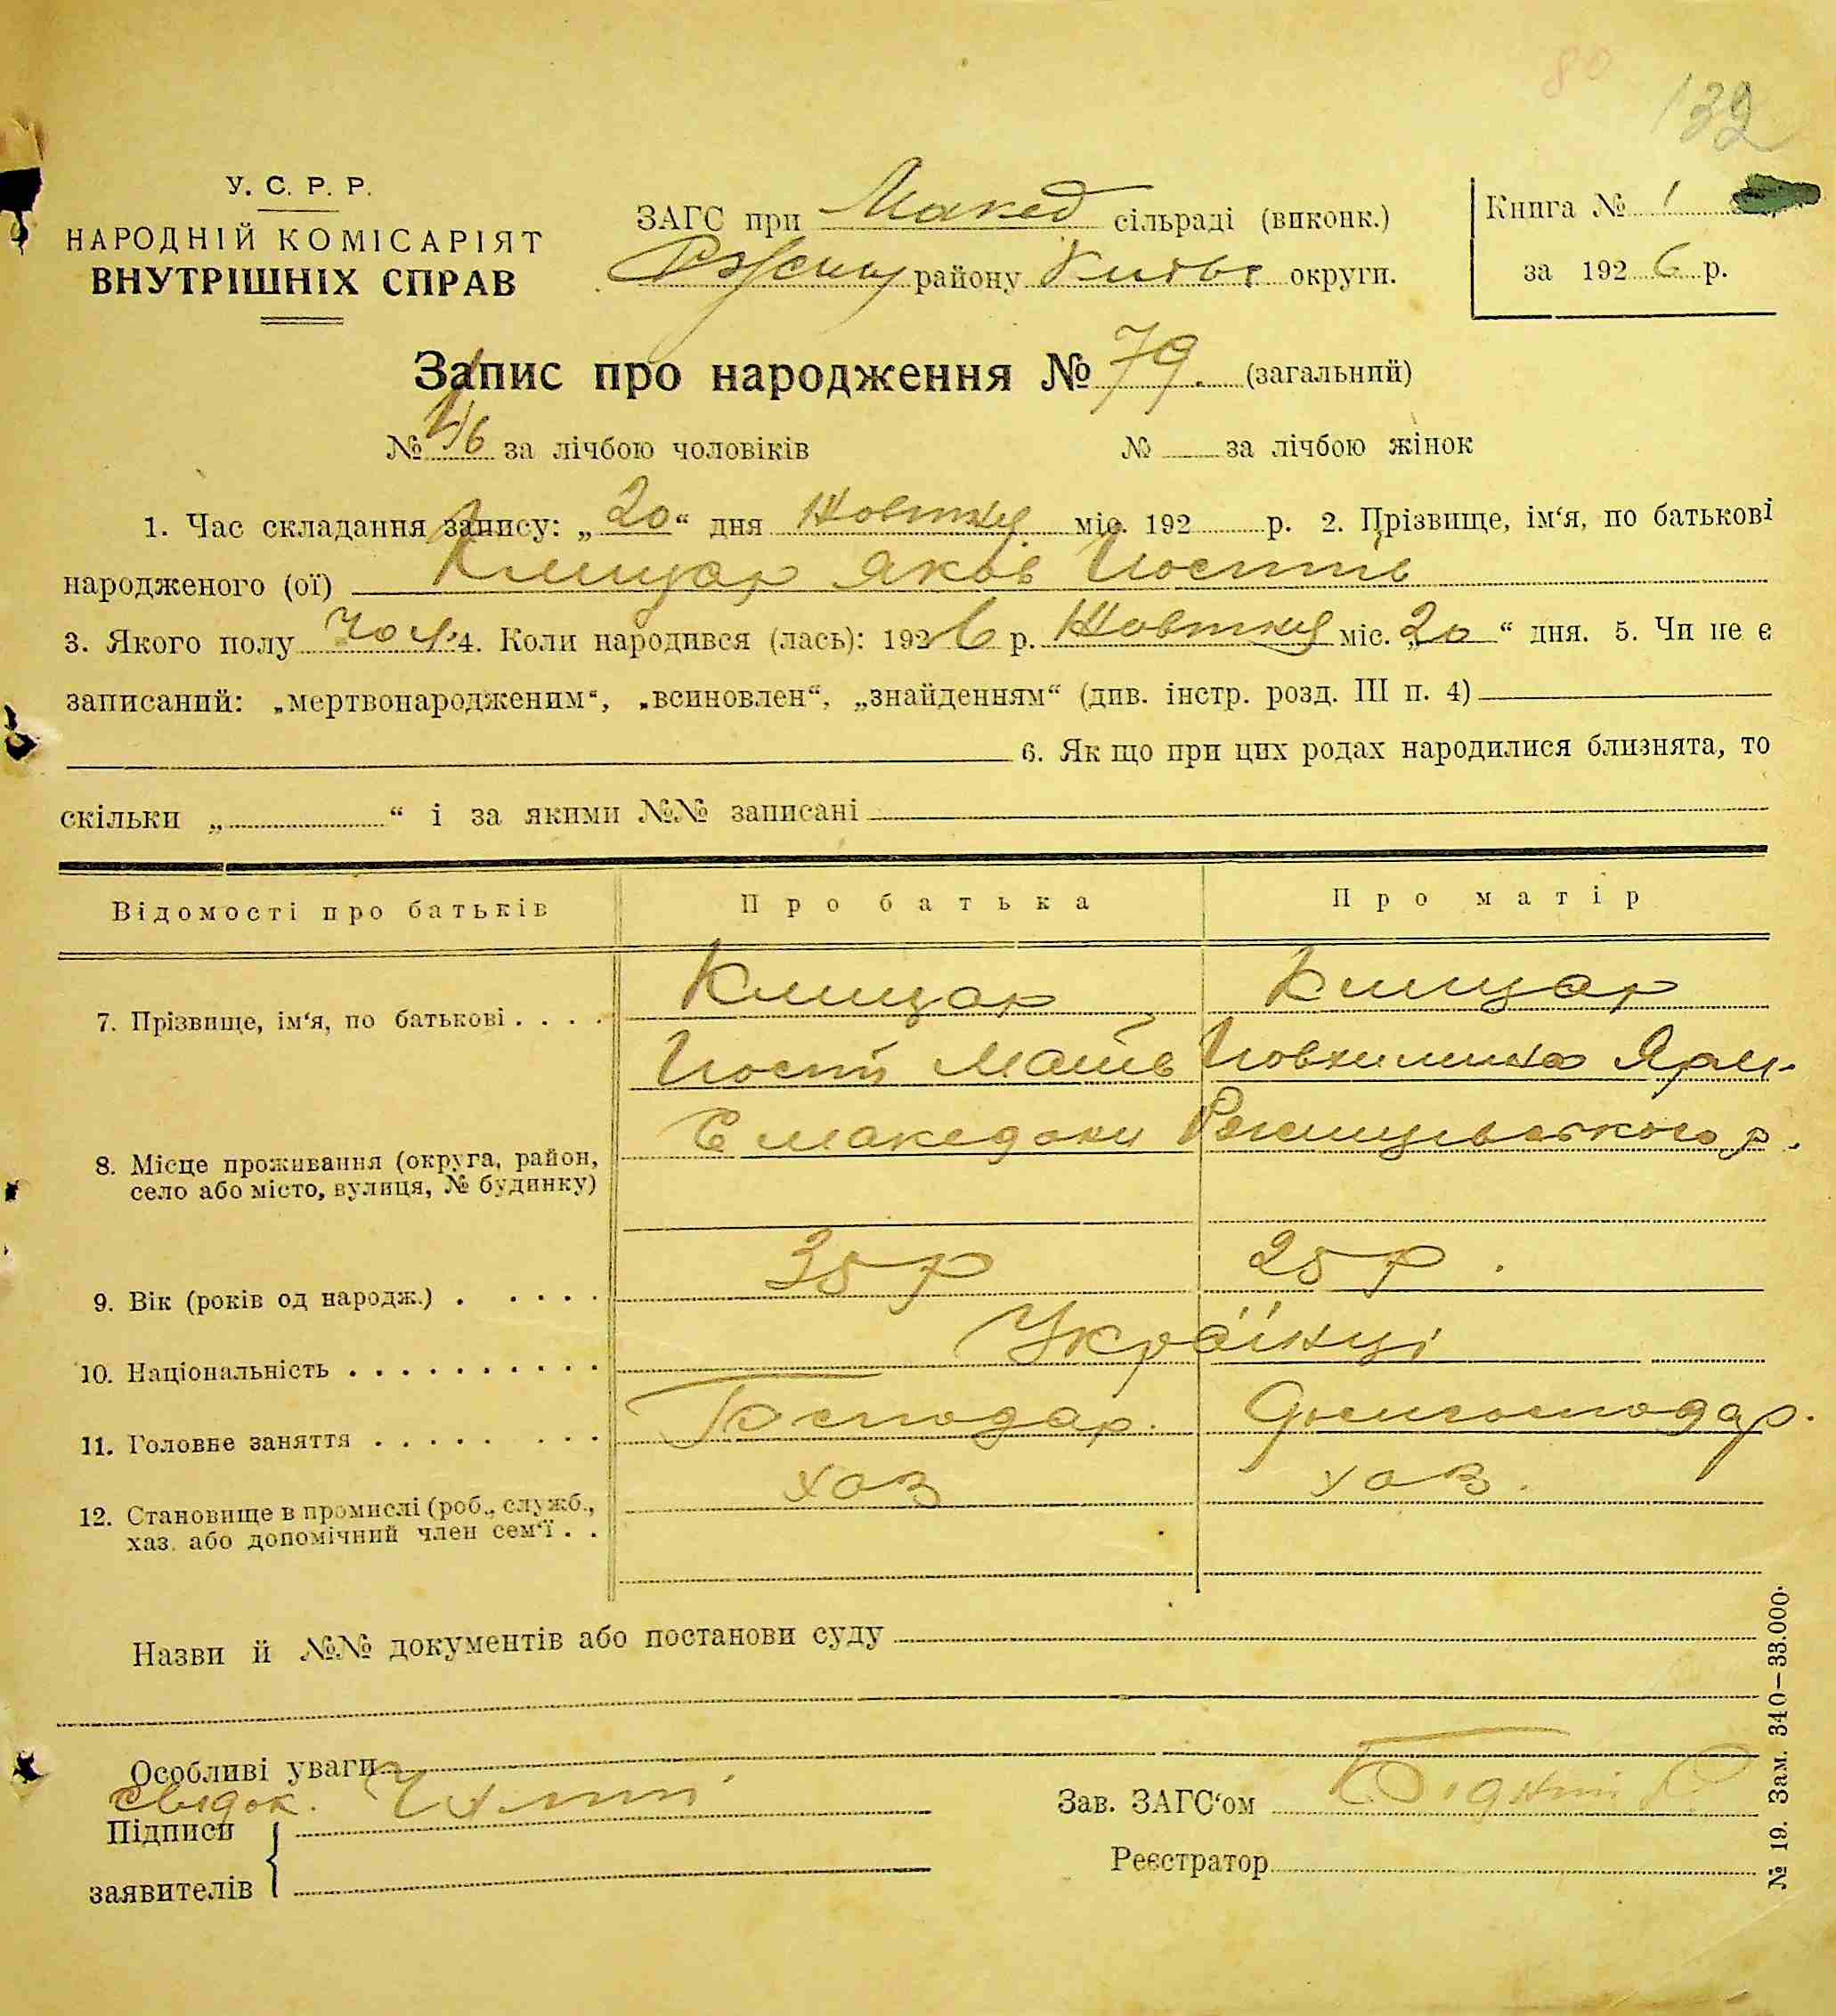 80
132
У. С. Р. Р.
НАРОДНІЙ КОМІСАРІЯТ
ВНУТРІШНІХ СПРАВ
ЗАГС при Макед сільраді (виконк.)
району Київс округи.
Книга № 1
за 1926 р.
Запис про народження № 79. (загальний)
№ 46 за лічбою чоловіків № за лічбою жінок
1. Час складання запису: „20“ дня Жовтня міс. 192 р. 2. Прізвище, ім‘я, по батькові
народженого (ої) Клицар Яков Йосипів
3. Якого полу чол. 4. Коли народився (лась): 1926 р. Жовтня міс. „20“ дня. 5. Чи не є
записаний: „мертвонародженим“, „всиновлен“, „знайденням“ (див. інстр. розд. III п. 4)
6. Як що при цих родах народилися близнята, то
скільки „ “ і за якими №№ записані
Відомості про батьків Про батька Про матір
Клицар Клицар
7. Прізвище, ім‘я, по батькові . . . .
Йосип Матв Явхимина Ярм.
С Македони Ржищевського р.
8. Місце проживання (округа, район,
село або місто, вулиця, № будинку)
35 р 25 р.
9. Вік (років од народж.) . . . . .
Українці
10. Національність . . . . . . . . . .
Господар. Домгосподар.
11. Головне заняття . . . . . . . .
хаз хаз.
12. Становище в промислі (роб., служб.,
хаз. або допомічний член сем‘ї . .
Назви й №№ документів або постанови суду
Особливі уваги
свідок.
Підписи
заявителів
Зав. ЗАГС‘ом Бідний
Реєстратор
№ 19. Зам. 340—33.000.